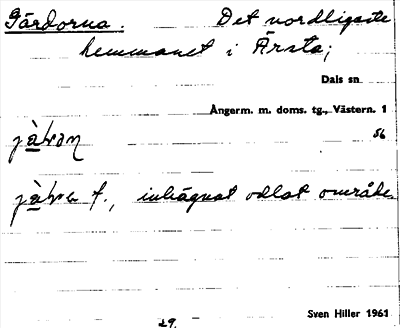 Gärdorna. Det nordligaste
hemmanet i Ärsta;
Dals sn
Ångerm. m. doms. tg., Västern. 1
56
f., inhägnat odlat område
29.
Sven Hiller 1961